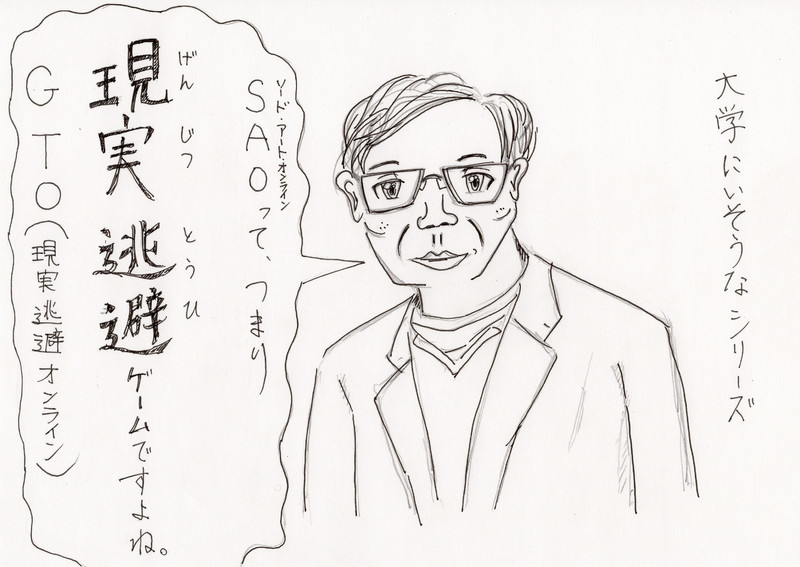 大学にいそうなシリーズ
ソード・アート・オンライン
SAOって、つまり
げんじつとうひ
現実逃避ゲームですよね。
GTO(現実逃避オンライン)